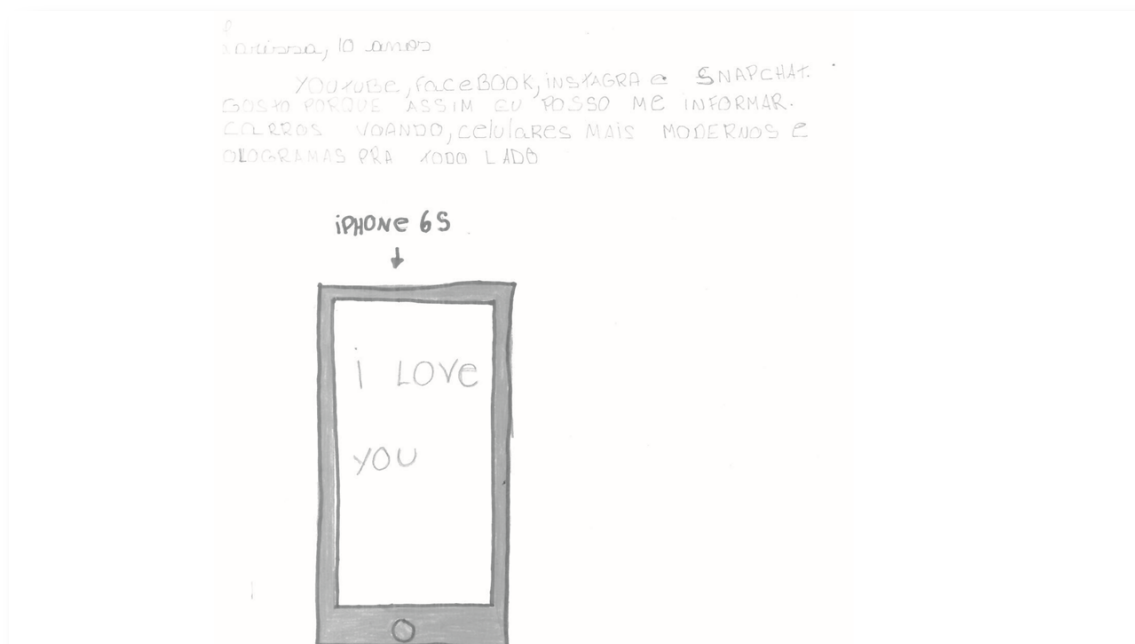 Larissa, 10 anos
YOUTUBE, FACEBOOK, INSTAGRA e SNAPCHAT.
GOSTO PORQUE ASSIM EU POSSO ME INFORMAR.
CARROS VOANDO, celulares MAIS MODERNOS e
OLOGRAMAS PRA TODO LADO
iPHONE 6S
i LOVE
YOU